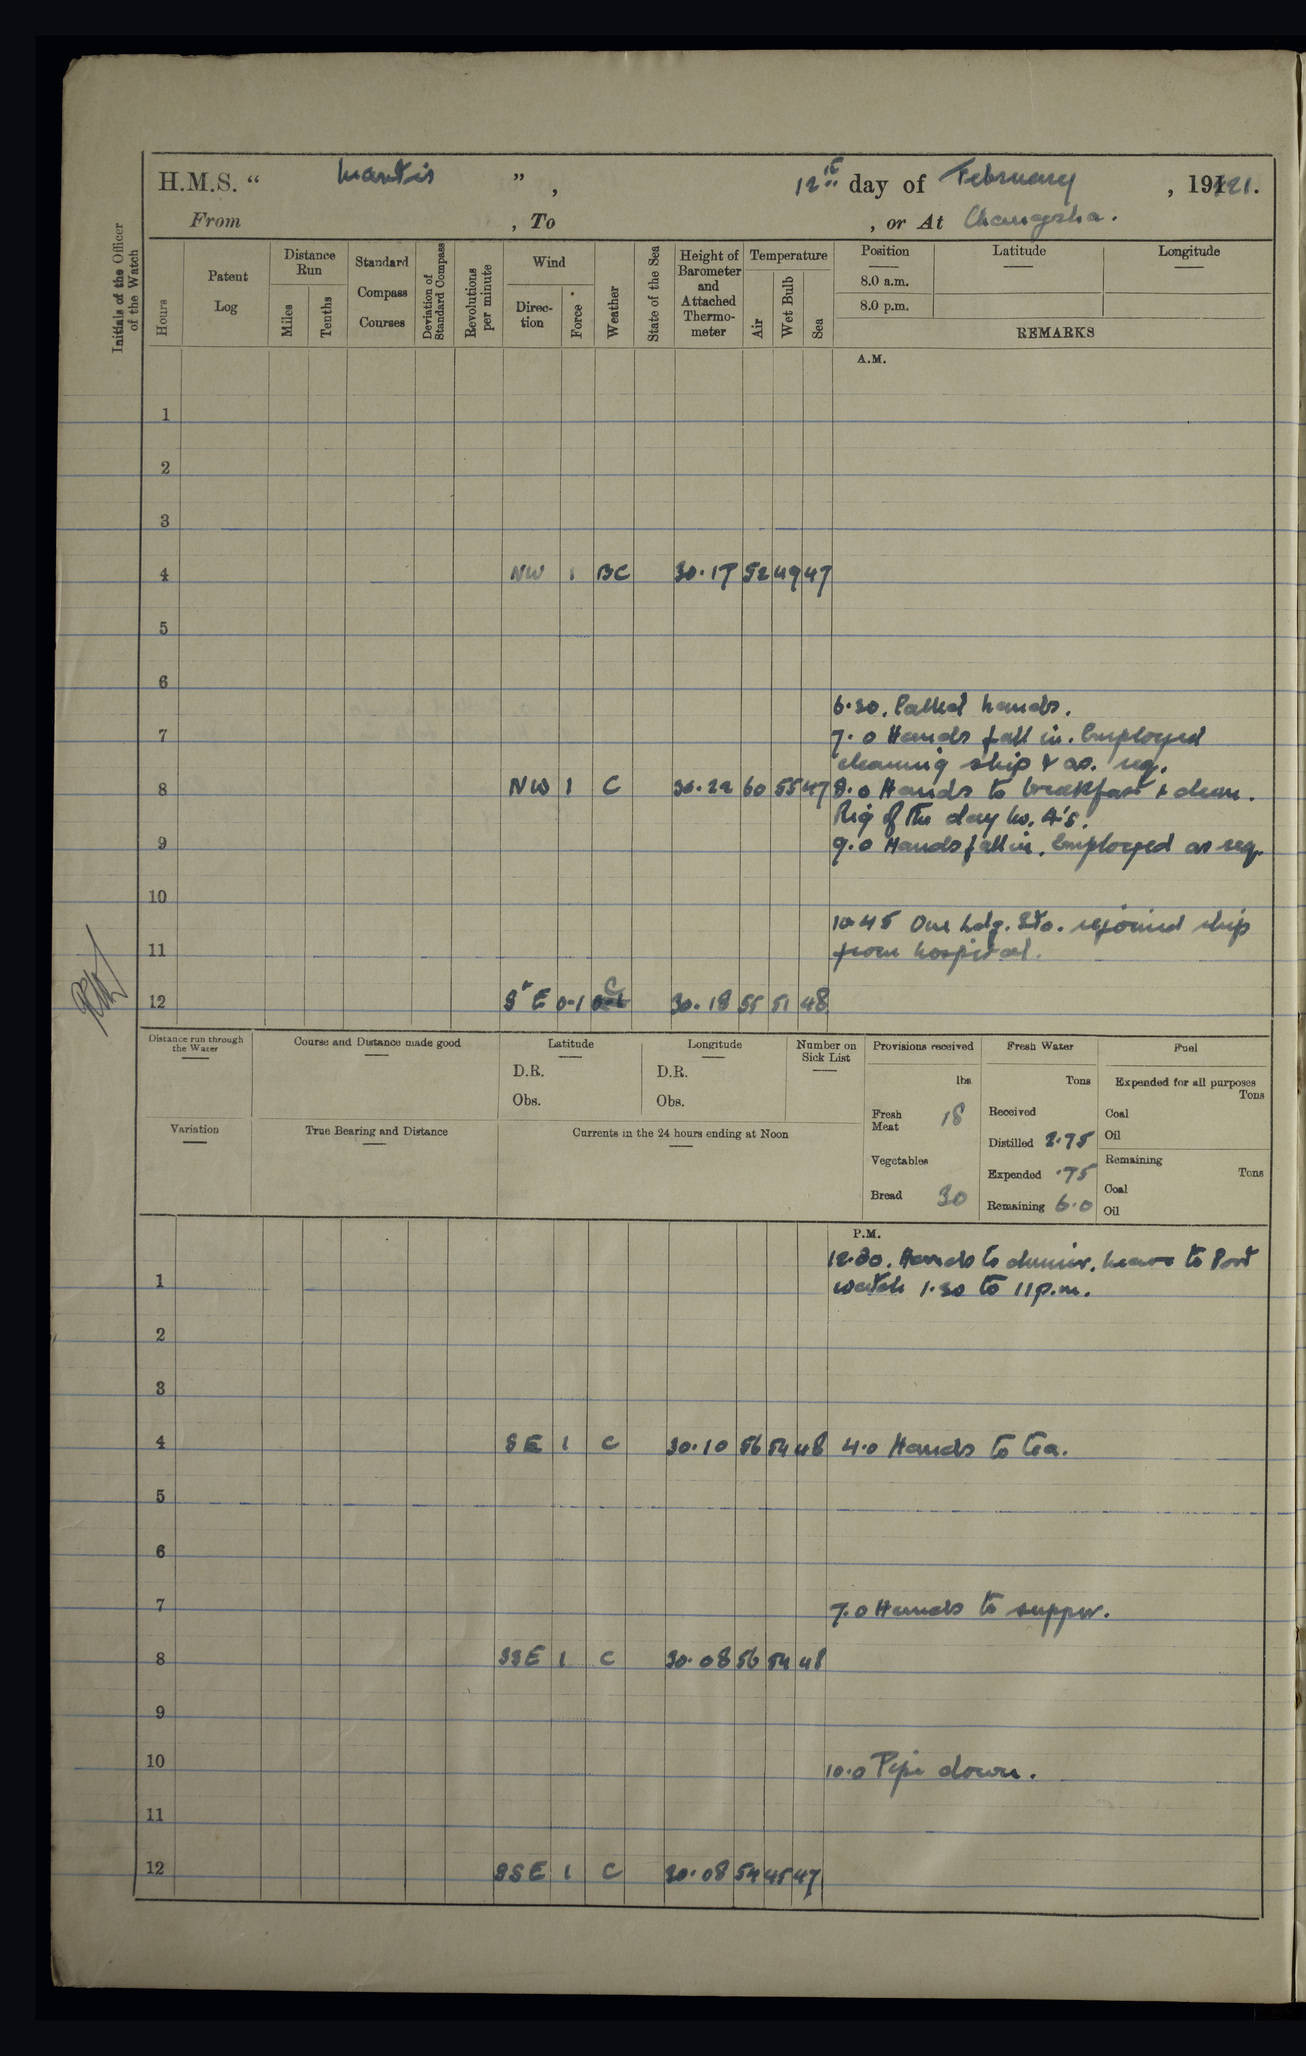 H.M.S. “ Mantis ” , 12th day of February , 1921.
From , To , or At Changsha.
Initials of the Officer of the Watch
Hours
Patent Log
Distance Run
Miles
Tenths
Standard Compass Courses
Deviation of Standard Compass
Revolutions per minute
Wind
Direction
Force
Weather
State of the Sea
Height of Barometer and Attached Thermometer
Temperature
Air
Wet Bulb
Sea
Position
Latitude
Longitude
8.0 a.m.
8.0 p.m.
REMARKS
A.M.
1
2
3
4 NW 1 BC 30.17 52 49 47
5
6
6.30. Called hands.
7 7.0 Hands fall in. Employed
cleaning ship & as. req.
8 NW 1 C 30.22 60 55 47 8.0 Hands to breakfast & clean.
Rig of the day No. 4's.
9 9.0 Hands fall in. Employed as req.
10
10.45 One Ldg. Sto. rejoined ship
11 from hospital.
12 S'E 0-1 C 30.18 55 51 48
Distance run through the Water
Course and Distance made good
Latitude
D.R.
Obs.
Longitude
D.R.
Obs.
Number on Sick List
Provisions received
lbs
Fresh Meat 18
Vegetables
Bread 30
Fresh Water
Tons
Received
Distilled 2.75
Expended .75
Remaining 6.0
Fuel
Expended for all purposes
Tons
Coal
Oil
Remaining
Tons
Coal
Oil
Variation
True Bearing and Distance
Currents in the 24 hours ending at Noon
P.M.
12.30. Hands to dinner. Leave to Port
1 watch 1.30 to 11 p.m.
2
3
4 SE 1 C 30.10 56 54 48 4.0 Hands to tea.
5
6
7 7.0 Hands to supper.
8 SSE 1 C 30.08 56 54 48
9
10 10.0 Pipe down.
11
12 SSE 1 C 30.08 54 45 47